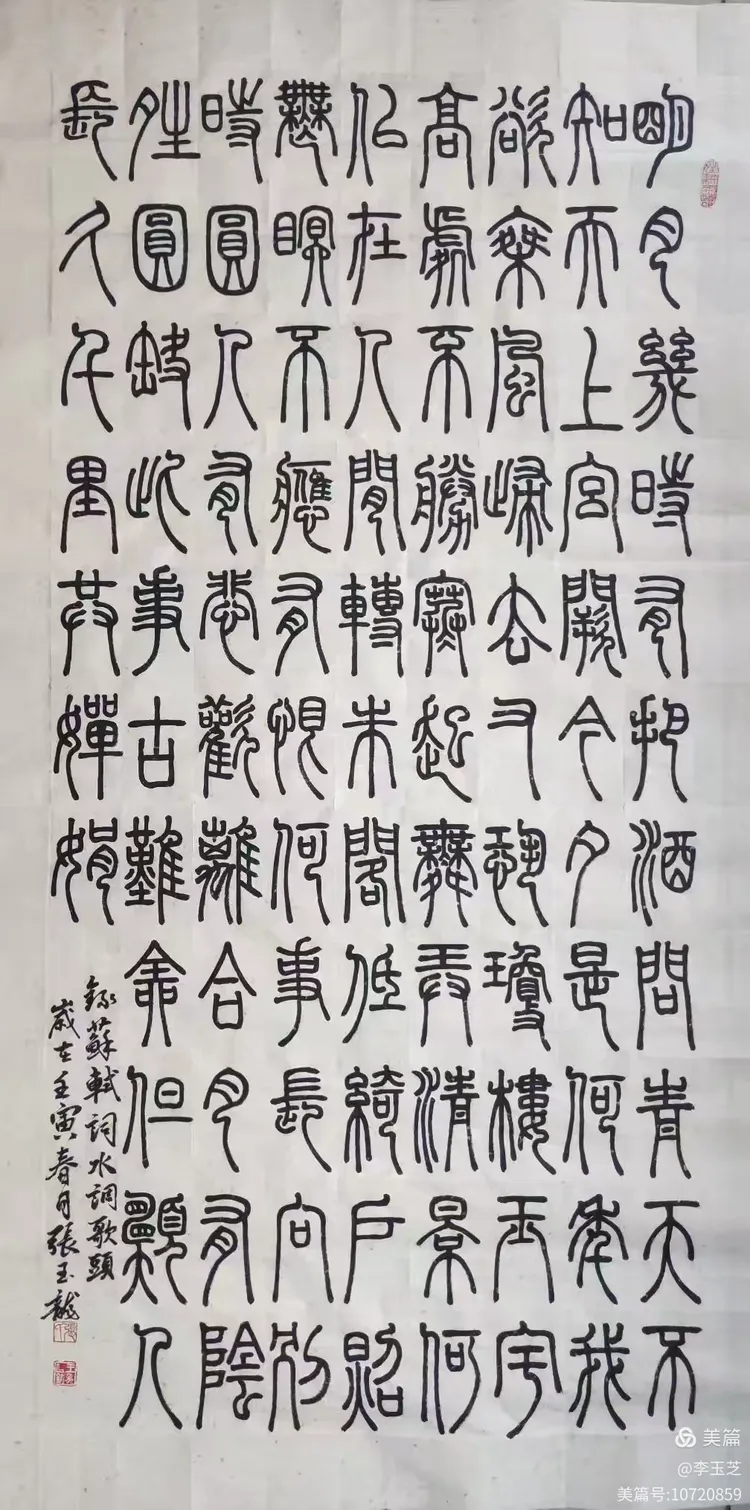 明月幾時有把酒問青天不
知天上宮闕今夕是何年我
欲乘風歸去又恐瓊樓玉宇
高處不勝寒起舞弄清景何
似在人間轉朱閣低綺戶照
無眠不應有恨何事長向別
時圓人有悲歡離合月有陰
晴圓缺此事古難全但願人
長久千里共嬋娟
錄蘇軾詞水調歌頭
歲在壬寅春月張玉龍
美篇
@李玉芝
美篇号:10720859